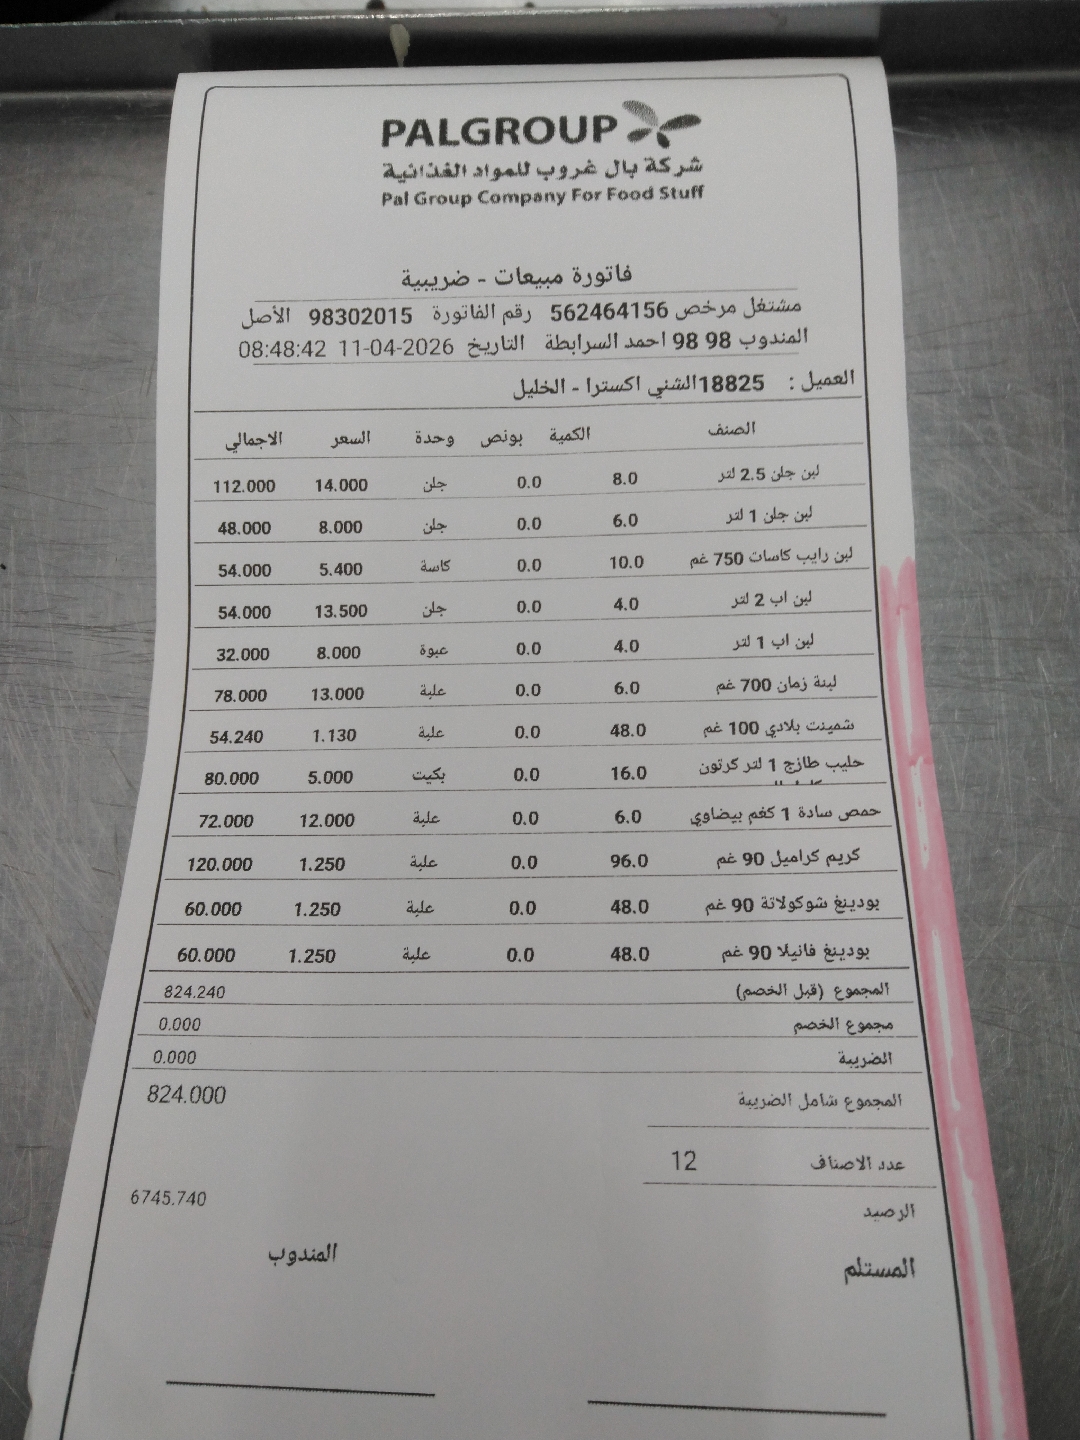 PALGROUP
شركة بال غروب للمواد الغذائية
Pal Group Company For Food Stuff
فاتورة مبيعات - ضريبية
مشتغل مرخص 562464156 رقم الفاتورة 98302015 الأصل
المندوب 98 98 احمد السرابطة التاريخ 11-04-2026 08:48:42
العميل : 18825الشني اكسترا - الخليل
الصنف الكمية بونص وحدة السعر الاجمالي
لبن جلن 2.5 لتر 8.0 0.0 جلن 14.000 112.000
لبن جلن 1 لتر 6.0 0.0 جلن 8.000 48.000
لبن رايب كاسات 750 غم 10.0 0.0 كاسة 5.400 54.000
لبن اب 2 لتر 4.0 0.0 جلن 13.500 54.000
لبن اب 1 لتر 4.0 0.0 عبوة 8.000 32.000
لبنة زمان 700 غم 6.0 0.0 علبة 13.000 78.000
شمينت بلادي 100 غم 48.0 0.0 علبة 1.130 54.240
حليب طازج 1 لتر كرتون 16.0 0.0 بكيت 5.000 80.000
حمص سادة 1 كغم بيضاوي 6.0 0.0 علبة 12.000 72.000
كريم كراميل 90 غم 96.0 0.0 علبة 1.250 120.000
بودينغ شوكولاتة 90 غم 48.0 0.0 علبة 1.250 60.000
بودينغ فانيلا 90 غم 48.0 0.0 علبة 1.250 60.000
المجموع (قبل الخصم) 824.240
مجموع الخصم 0.000
الضريبة 0.000
المجموع شامل الضريبة 824.000
عدد الاصناف 12
الرصيد 6745.740
المستلم المندوب